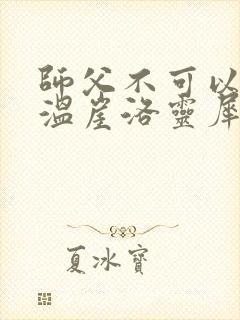 師父不可以
溫崖洛靈犀
夏冰寶